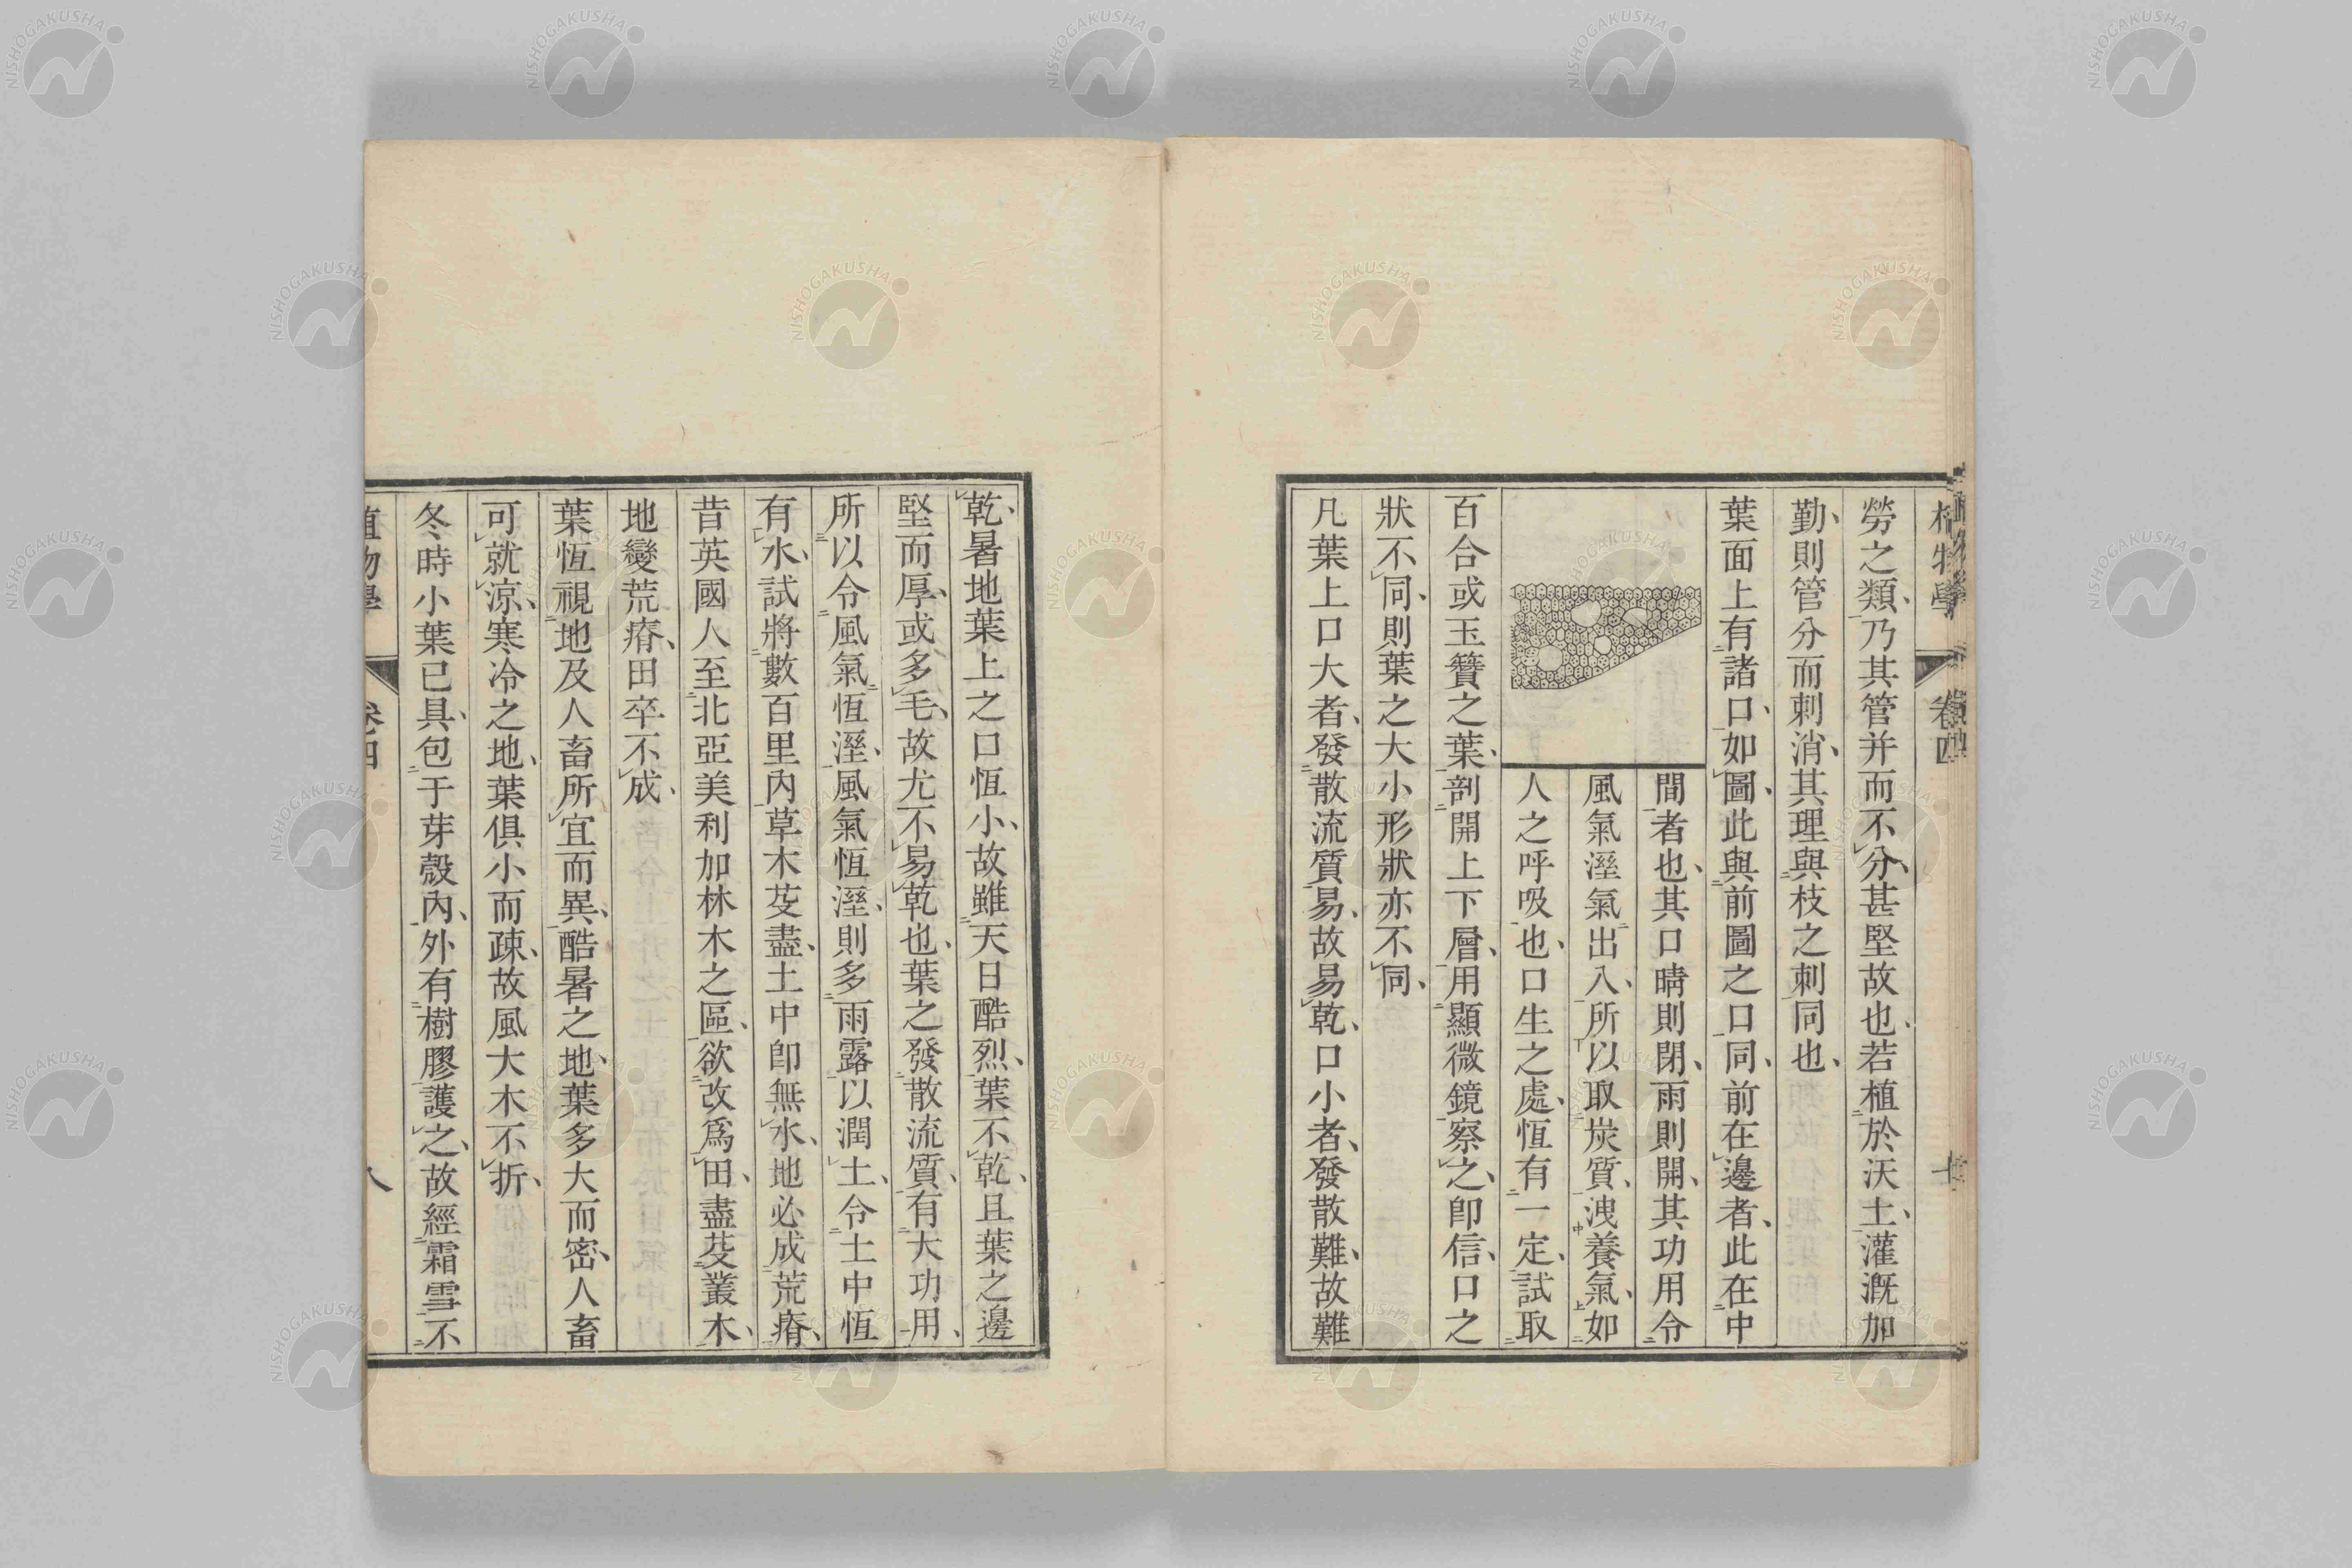 植物學 卷四
勞之類、乃其管并而不分、甚堅故也、若植於沃土、灌漑加
勤、則管分而刺消、其理與枝之刺同也、
葉面上有諸口、如圖、此與前圖之口同、前在邊者、此在中
間者也、其口晴則閉、雨則開、其功用令
風氣溼氣出入、所以取炭質、洩養氣、如
人之呼吸也、口生之處、恆有一定、試取
百合或玉簪之葉、剖開上下層、用顯微鏡察之、卽信、口之
狀不同、則葉之大小形狀亦不同、
凡葉上口大者、發散流質易、故易乾、口小者、發散難、故難
乾、暑地葉上之口恆小、故雖天日酷烈、葉不乾、且葉之邊
堅而厚、或多毛、故尤不易乾也、葉之發散流質、有大功用、
所以令風氣恆溼、風氣恆溼、則多雨露以潤土、令土中恆
有水、試將數百里內草木芟盡、土中卽無水、地必成荒瘠、
昔英國人至北亞美利加林木之區、欲改爲田、盡芟叢木、
地變荒瘠、田卒不成、
葉恆視地及人畜所宜而異、酷暑之地、葉多大而密、人畜
可就涼、寒冷之地、葉俱小而疎、故風大木不折、
冬時小葉已具、包于芽殼內、外有樹膠護之、故經霜雪不
植物學 卷四 八
NISHOGAKUSHA